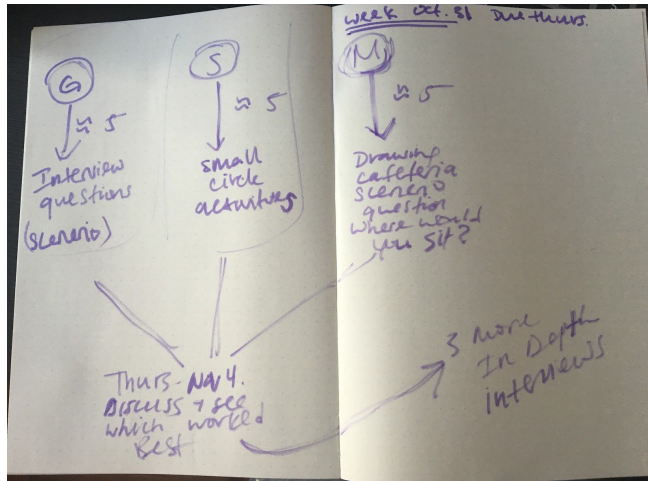 week Oct. 31 Due thurs.
G
≈ 5
Interview
questions
(scenerio)
S
≈ 5
small
circle
activities
M
≈ 5
Drawing
cafeteria
scenerio
question
where would
you sit?
Thurs - Nov 4.
Discuss + see
which worked
Best
3 More
In Depth
interviews